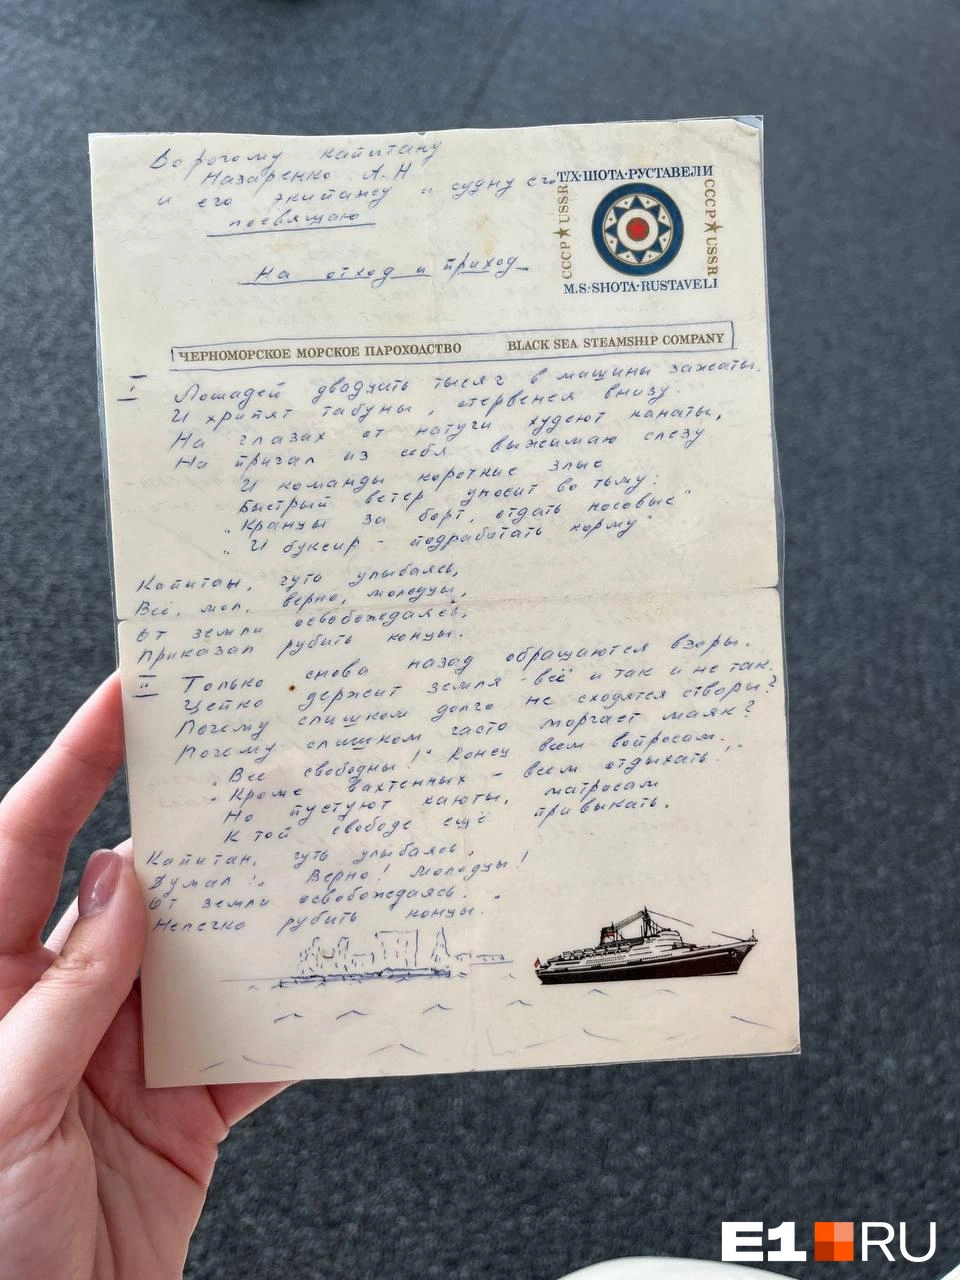 Дорогому капитану
Назаренко А.Н.
и его экипажу и судну его
посвящаю
На отход и приход
Т/Х·ШОТА·РУСТАВЕЛИ
СССР★USSR
СССР★USSR
M.S.·SHOTA·RUSTAVELI
ЧЕРНОМОРСКОЕ МОРСКОЕ ПАРОХОДСТВО BLACK SEA STEAMSHIP COMPANY
I Лошадей двадцать тысяч в машины зажаты,
И хрипят табуны, стервенея внизу.
На глазах от натуги худеют канаты,
На причал из себя выжимаю слезу
И команды короткие злые
Быстрый ветер уносит во тьму:
"Кранцы за борт, отдать носовые"
"И буксир - подработать корму"
Капитан, чуть улыбаясь,
Всё, мол, верно, молодцы,
От земли освобождаясь,
Приказал рубить концы.
II Только снова назад обращаются взоры.
Цепко держит земля - всё и так и не так.
Почему слишком долго не сходятся створы?
Почему слишком часто моргает маяк?
"Все свободны!" Конец всем вопросам.
"Кроме вахтенных - всем отдыхать!"
Но пустуют каюты, матросам
К той свободе ещё привыкать.
Капитан, чуть улыбаясь,
Думал: "Верно! Молодцы!
От земли освобождаясь,
Нелегко рубить концы."
E1.RU